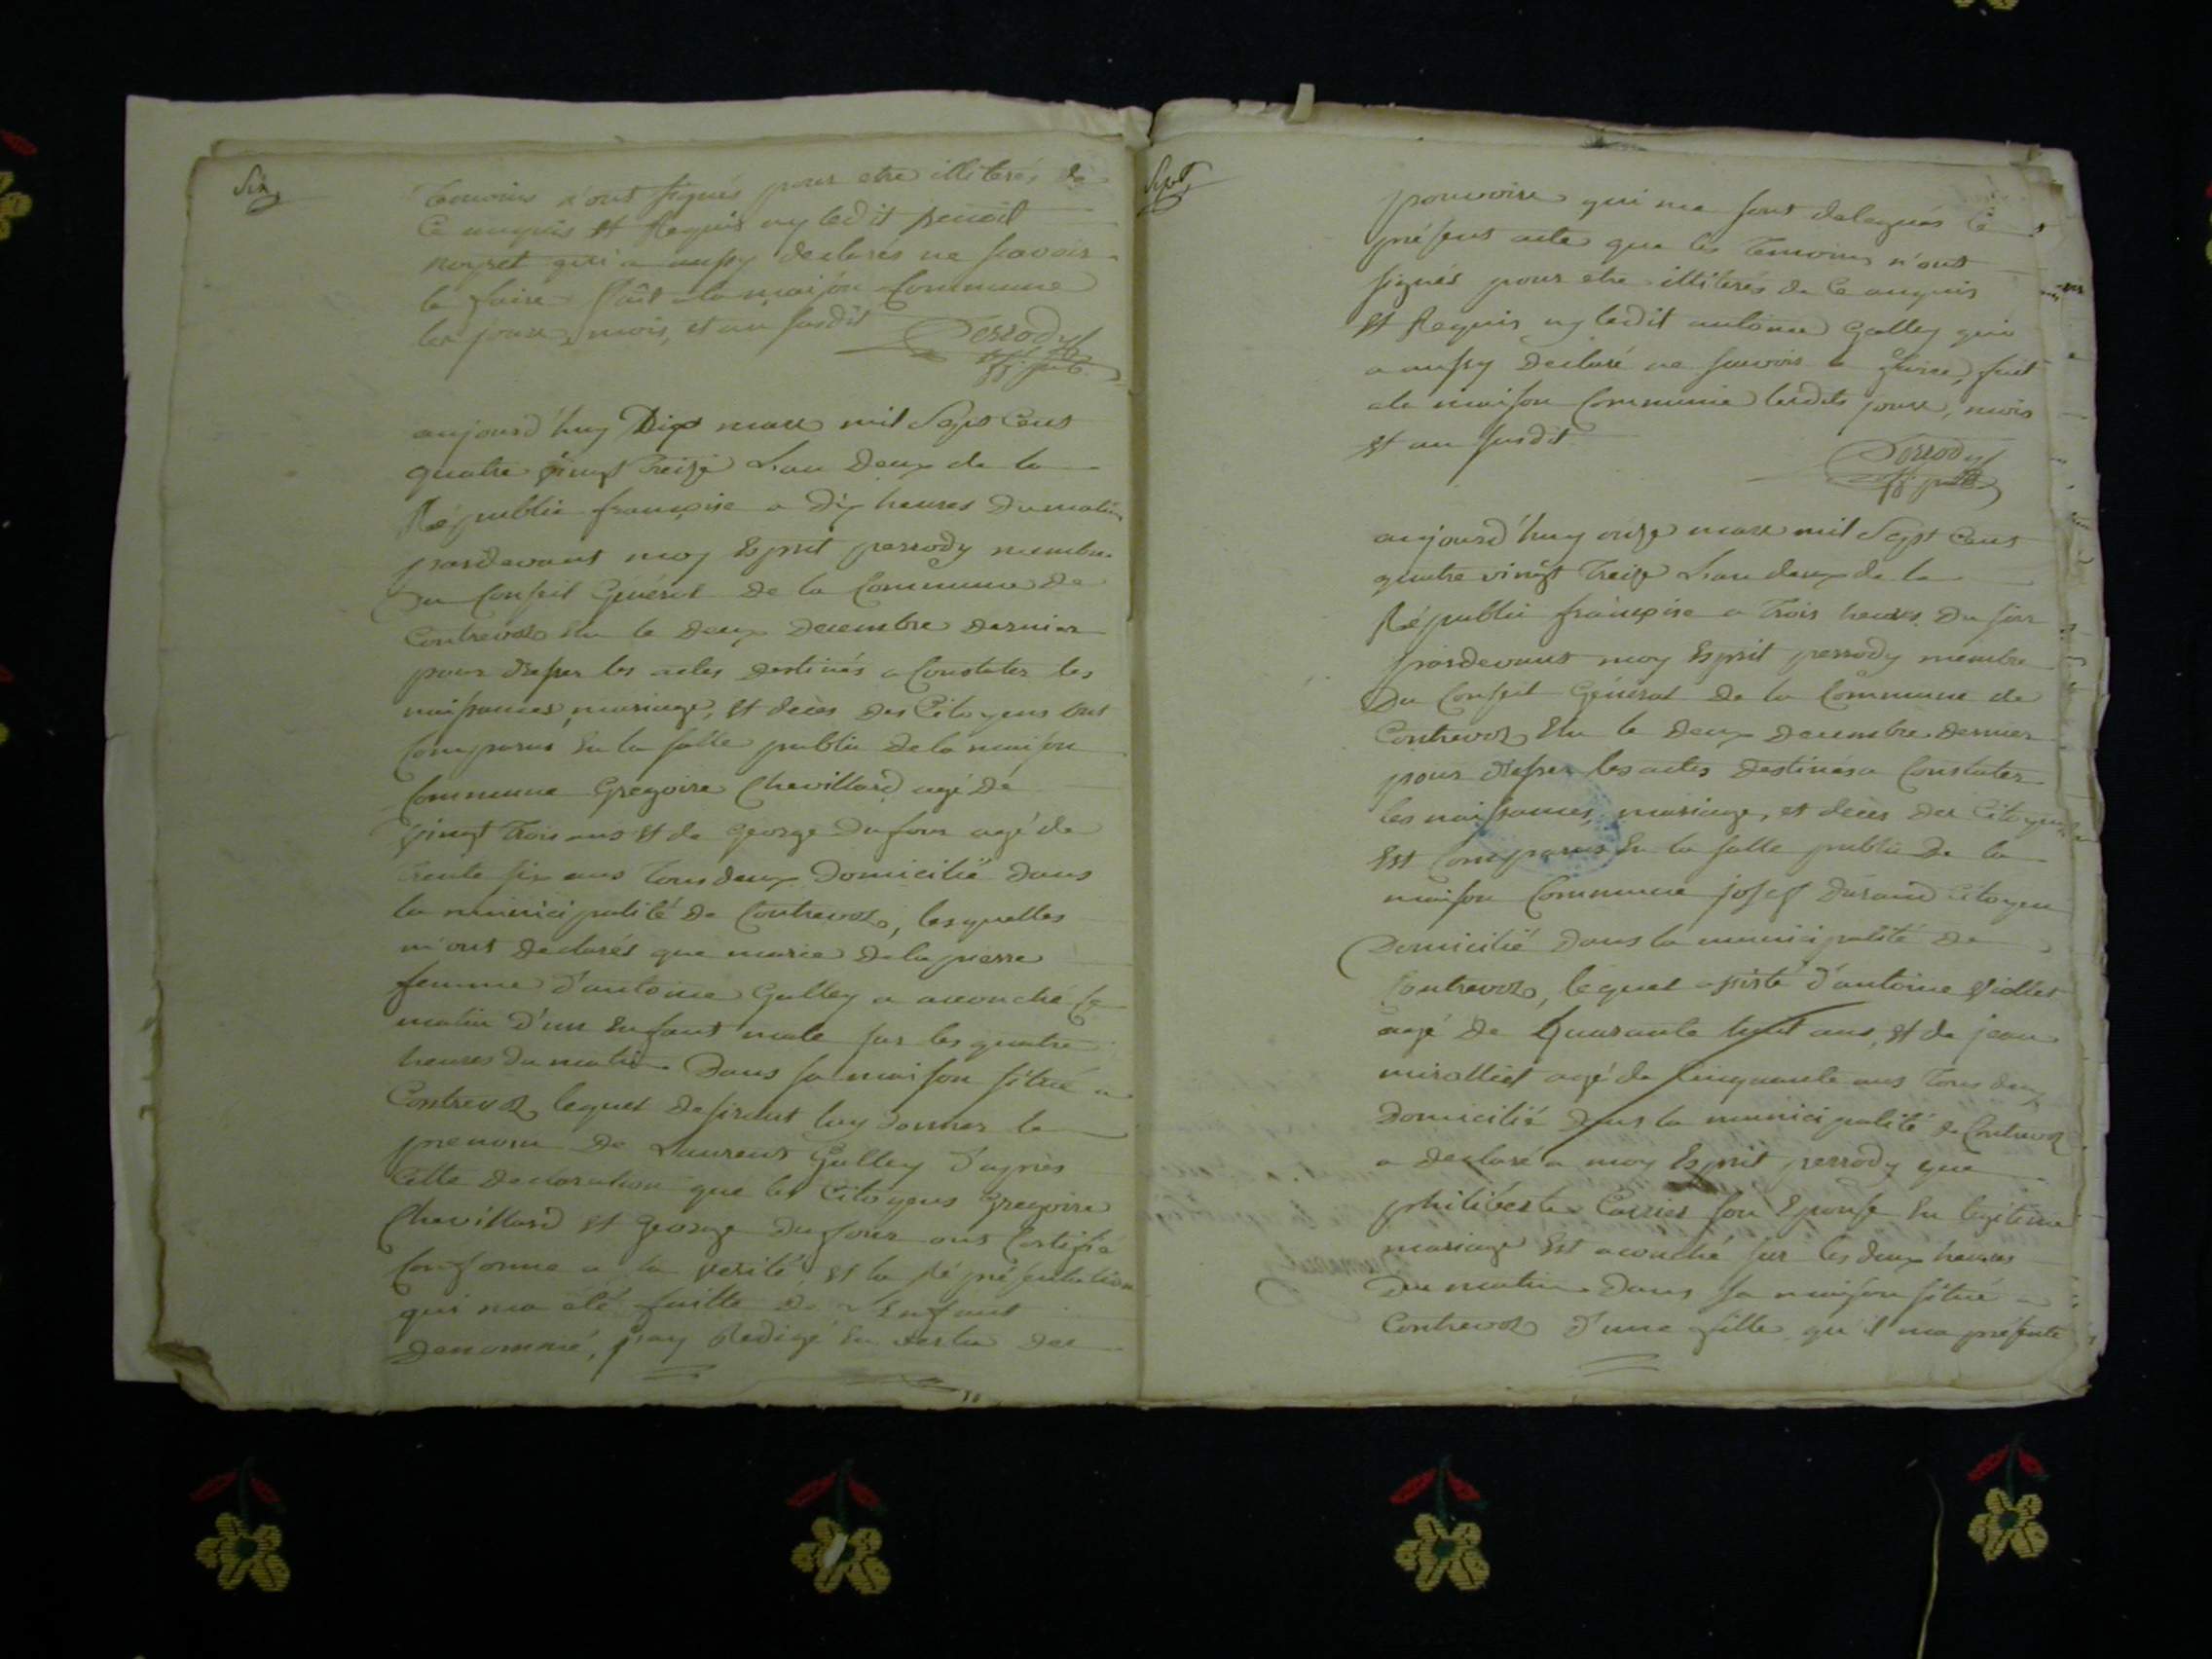 Six
temoins n'ont signés pour etre illiterés de
ce enquis et Requis ny ledit benoit
noyret qui a aussy declarés ne scavoir
le faire fait a la maison Commune
les jour, mois, et an susdit Perrody
off. pub.
aujourd'huy Dix mars mil Sept Cent
quatre vingt treize L'an Deux de la
République françoise a Dix heures Du matin
pardevant moy Esprit perrody membre
Du Conseil Général De la Commune De
Contrevoz Elu le Deux Decembre Dernier
pour dresser les actes destinés a Constater les
naissances, mariage, et décès Des Citoyens sont
Comparus En la salle public De la maison
Commune Gregoire Chevillard agé De
vingt trois ans et de George Dufour agé de
trente six ans tous deux Domicilié Dans
la municipalité De Contrevoz, lesquelles
m'ont declarés que marie Delapierre
femme d'antoine Galley a accouché ce
matin D'un Enfant male sur les quatre
heures Du matin Dans sa maison situé a
Contrevoz lequel desirant luy donner le
prenom De Laurent Galley D'après
Cette Declaration que les Citoyens Gregoire
Chevillard et George Dufour ont Certifié
Conforme a la verité, et la réprésentation
qui ma été faitte De L'Enfant
Denommé, j'ay Redigé En vertu Des
Sept
pouvoirs qui me sont delegués Ce
présent acte que les temoins n'ont
signés pour etre illiterés de ce enquis
et Requis ny ledit antoine Galley qui
a aussy Declaré ne scavoir le faire, fait
a la maison Commune lesdits jour, mois
et an susdit
Perrody
off. pub.
aujourd'huy onze mars mil Sept Cent
quatre vingt treize L'an deux de la
République françoise a trois heures Du soir
pardevant moy Esprit perrody membre
Du Conseil Général De la Commune de
Contrevoz Elu le Deux Decembre Dernier
pour dresser les actes Destinés a Constater
les naissances, mariage, et décès Des Citoyens
Est Comparus En la salle public De la
maison Commune josef Durand Citoyen
Domicilié Dans la municipalité De
Contrevoz, lequel assisté D'antoine Viollet
agé De Quarante huit ans, et de jean
miralliet agé de Cinquante ans tous deux
Domicilié Dans la municipalité de Contrevoz
a declaré a moy Esprit perrody que
philiberte Carrier son Epouse En legitime
mariage Est acouché sur les deux heures
Du matin Dans sa maison situé a
Contrevoz D'une fille qu'il ma présenté